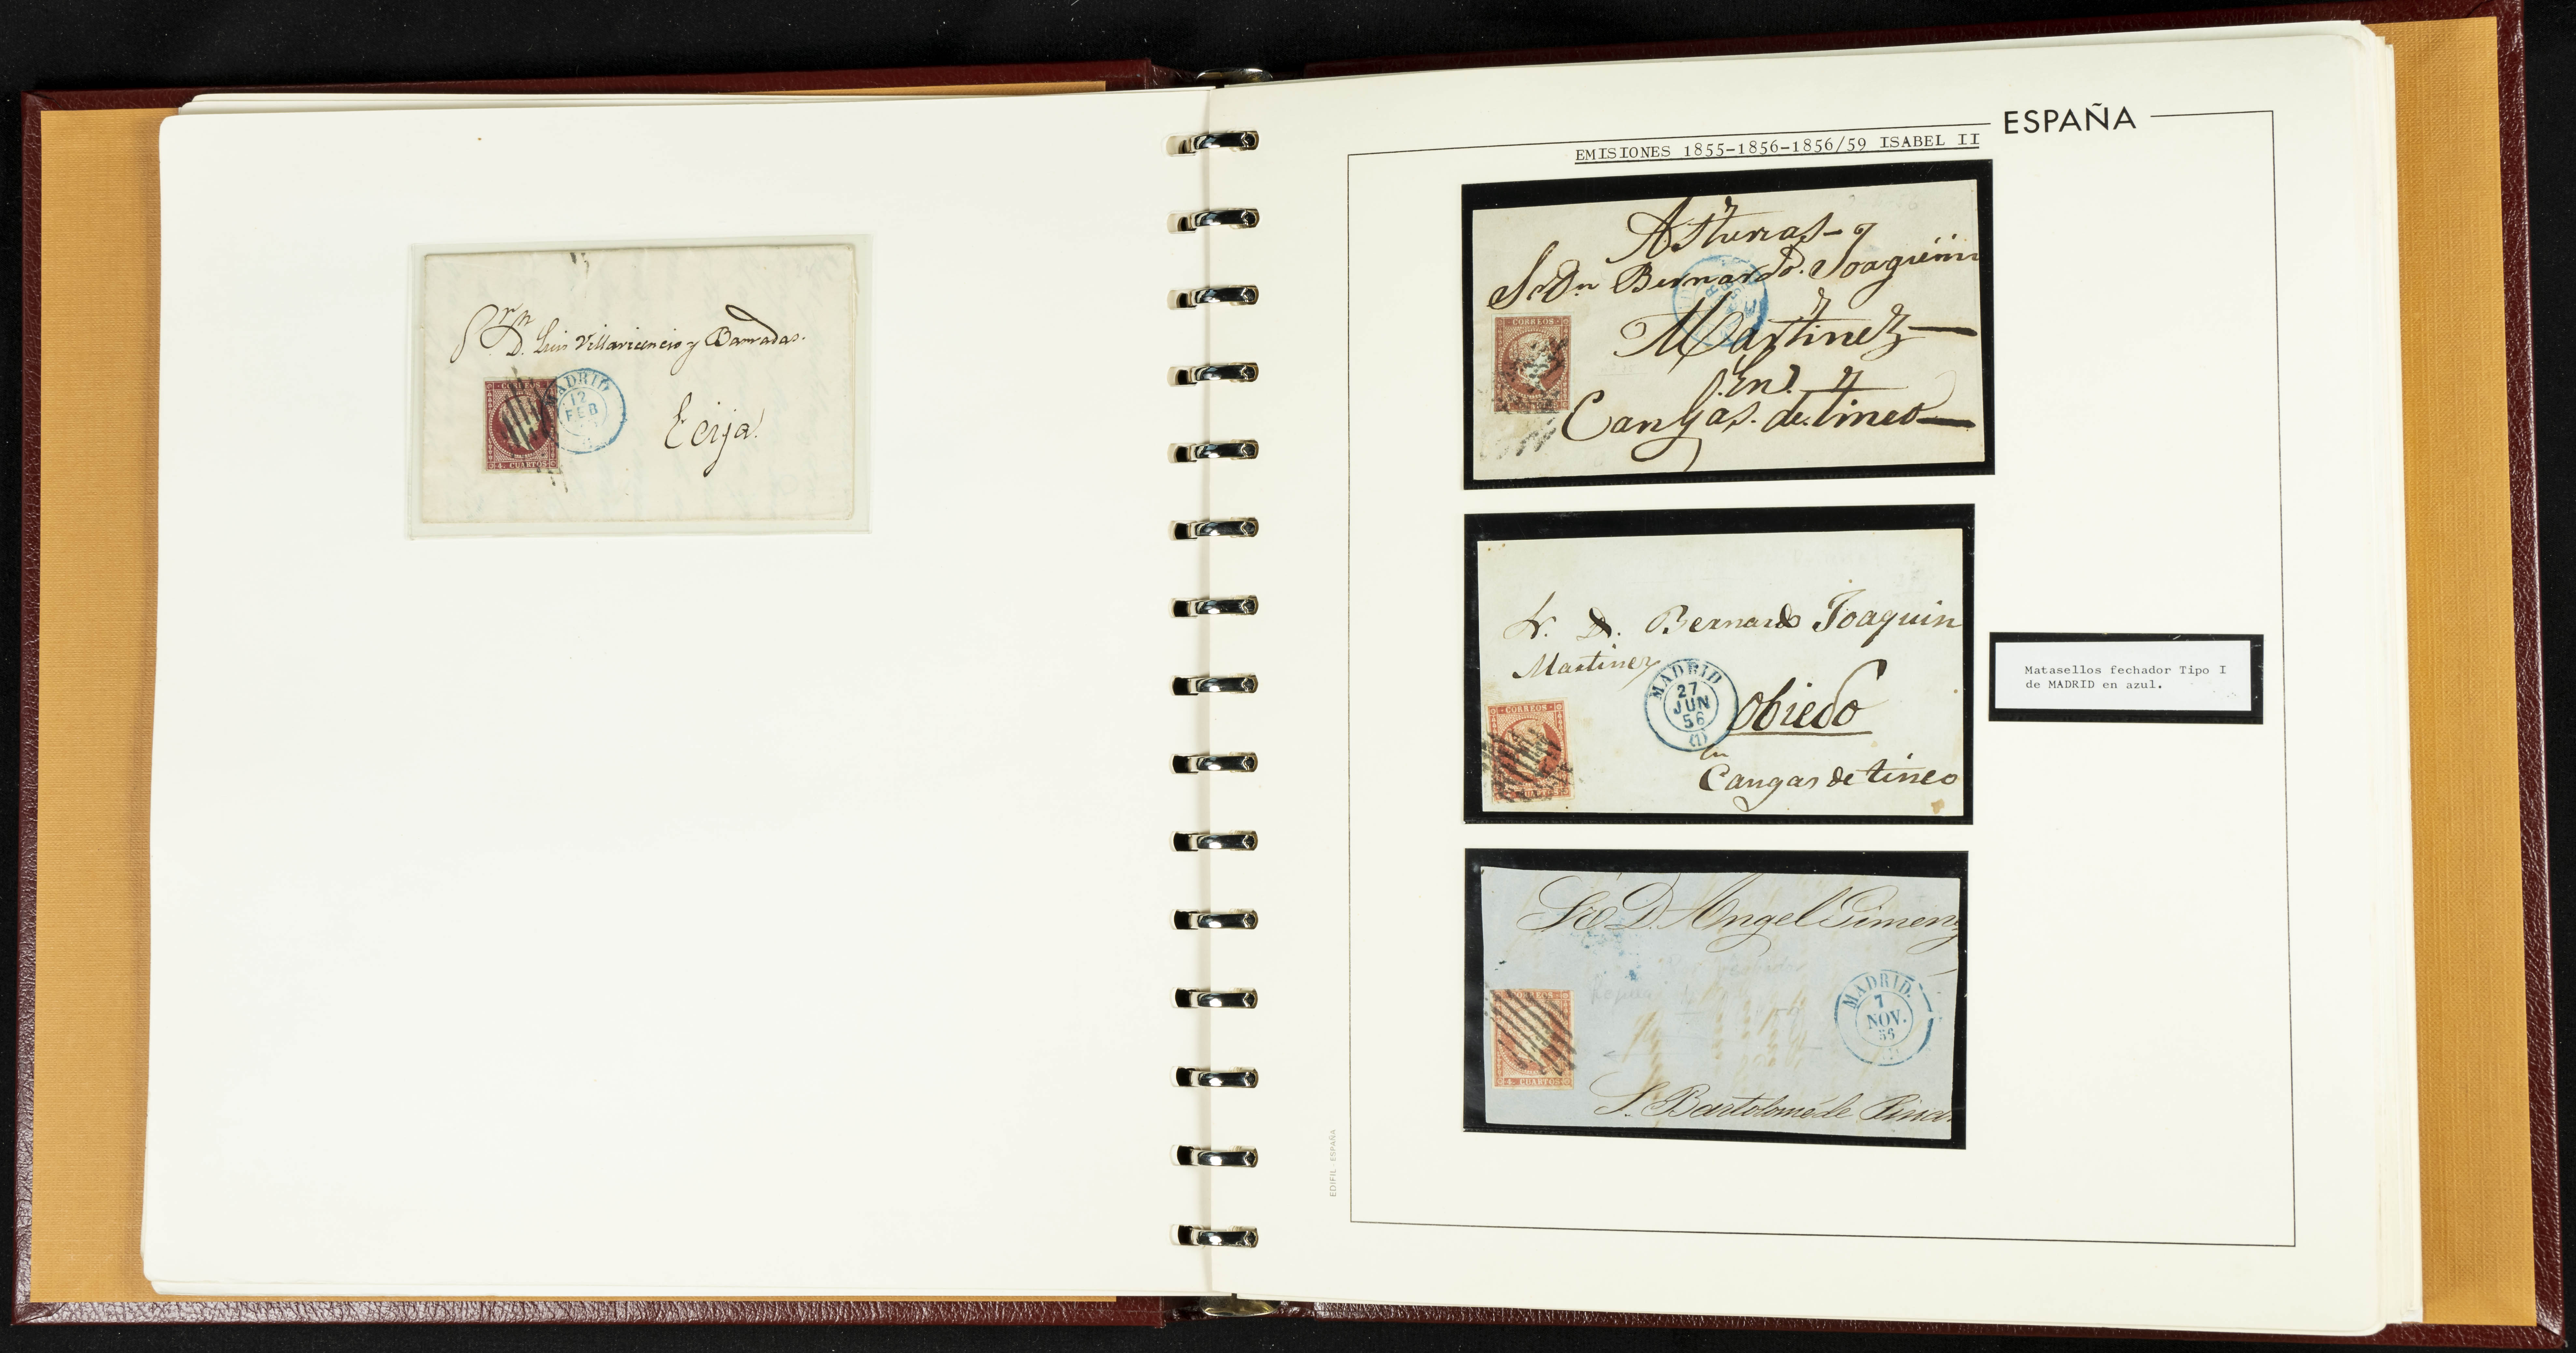 D. Luis Villavicencio y Barradas.
Ecija.
CORREOS
4 CUARTOS
MADRID
12
FEB
ESPAÑA
EMISIONES 1855-1856-1856/59 ISABEL II
Asturias
Sr Dn Bernardo Joaquin
Martinez
En
Cangas de tineo
CORREOS
Sr. D. Bernardo Joaquin
Martinez
Obiedo
en
Cangas de tineo
MADRID
27
JUN
56
(1)
CORREOS
CUARTOS
Matasellos fechador Tipo I
de MADRID en azul.
Sr D. Angel Gimenz
S. Bartolomé de Pina
MADRID.
7
NOV.
56
4 CUARTOS
EDIFIL - ESPAÑA